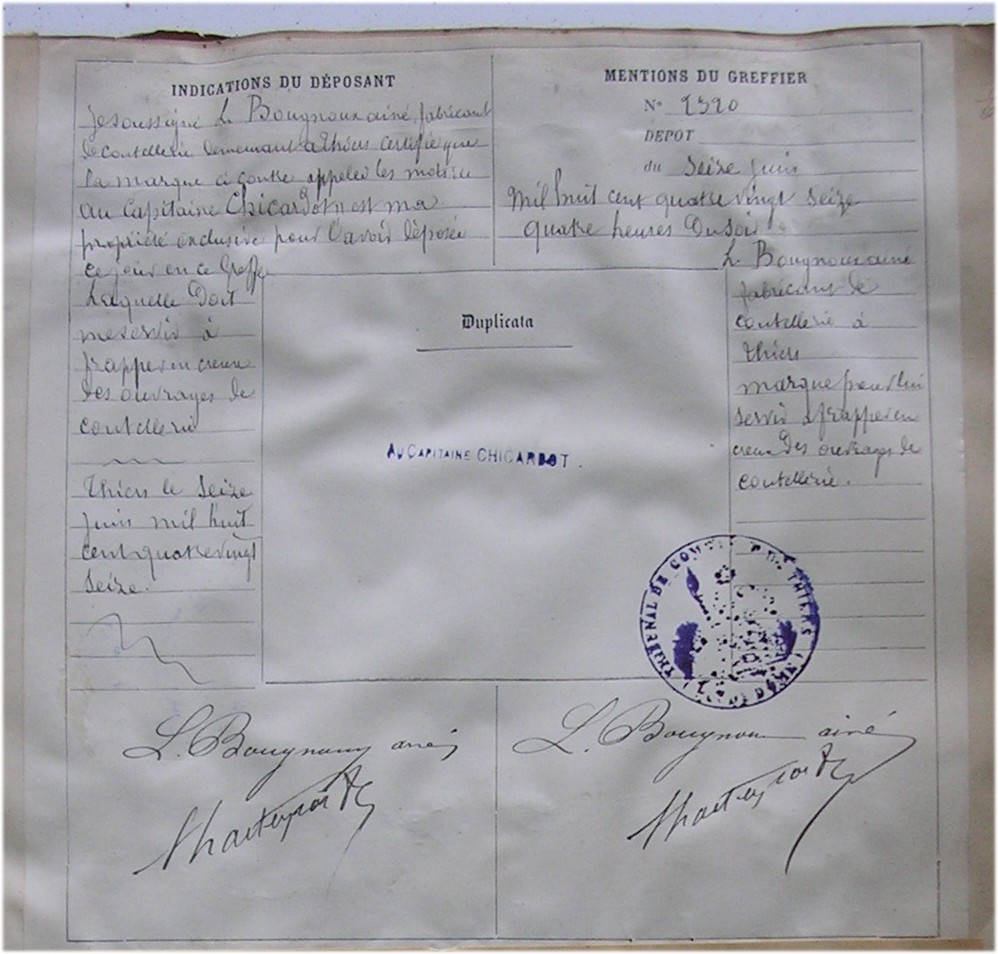 INDICATIONS DU DÉPOSANT
Je soussigné L. Bougnoux ainé, fabricant
de coutellerie demeurant a Thiers certifie que
la marque ci contre appelée les mots :
Au Capitaine Chicardot est ma
propriété exclusive pour l'avoir déposée
ce jour en ce Greffe
Laquelle doit
me servir à
frapper en creux
des ouvrages de
coutellerie
Thiers le seize
juin mil huit
cent quatre vingt
seize.
MENTIONS DU GREFFIER
N° 2320
DEPOT
du seize juin
mil huit cent quatre vingt seize
quatre heures du soir
L. Bougnoux ainé
fabricant de
coutellerie à
Thiers
marque pour lui
servir à frapper en
creux des ouvrages de
coutellerie.
Duplicata
AU CAPITAINE CHICARDOT
TRIBUNAL DE COMMERCE DE THIERS
L. Bougnoux ainé
L. Bougnoux ainé